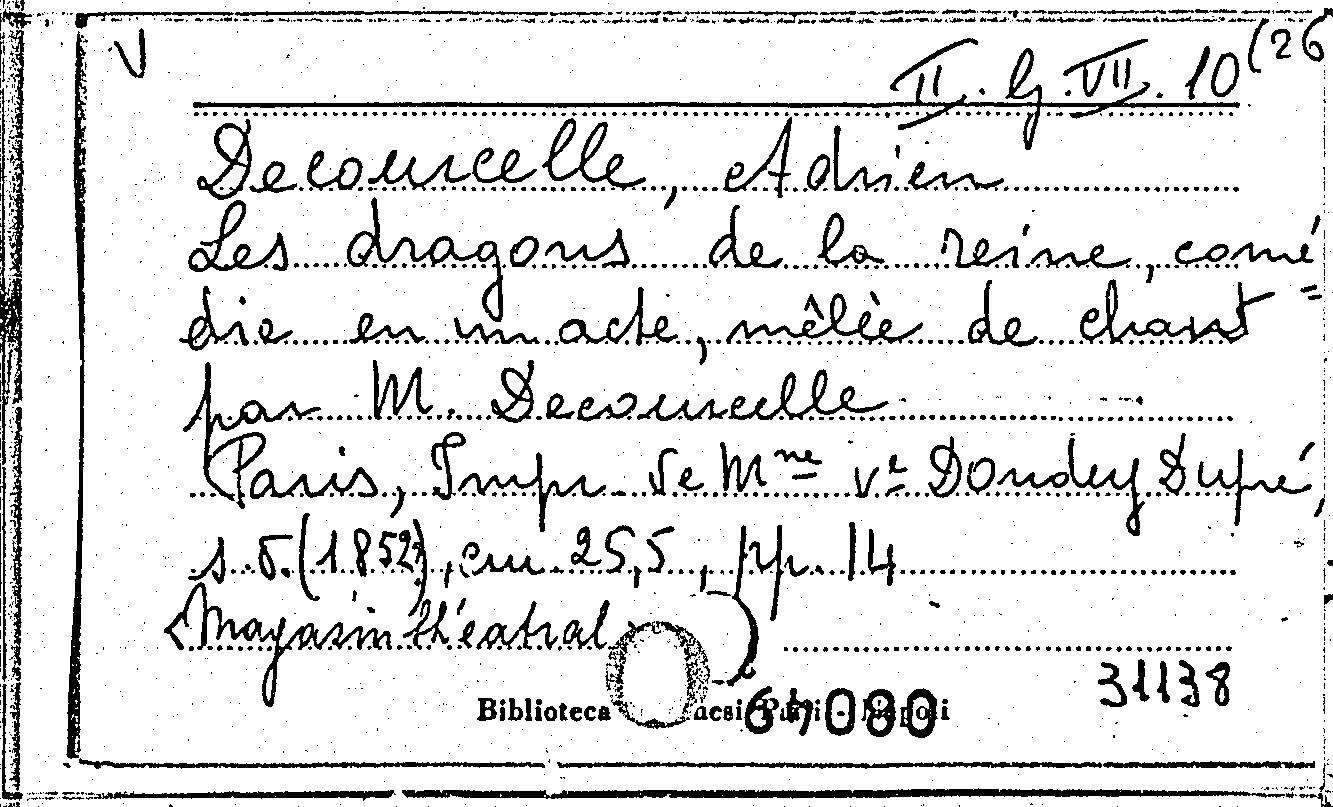 V
II. G. VII. 10 (26
Decourcelle, Adrien
Les dragons de la reine, comé=
die en un acte, mêlée de chant
par M. Decourcelle
Paris, Impr. de Mme ve Dondey Dupré,
s.d. (1852?), cm. 25,5, pp. 14
<Magasin théatral>
31138
Biblioteca Lucchesi Palli - Napoli
64080